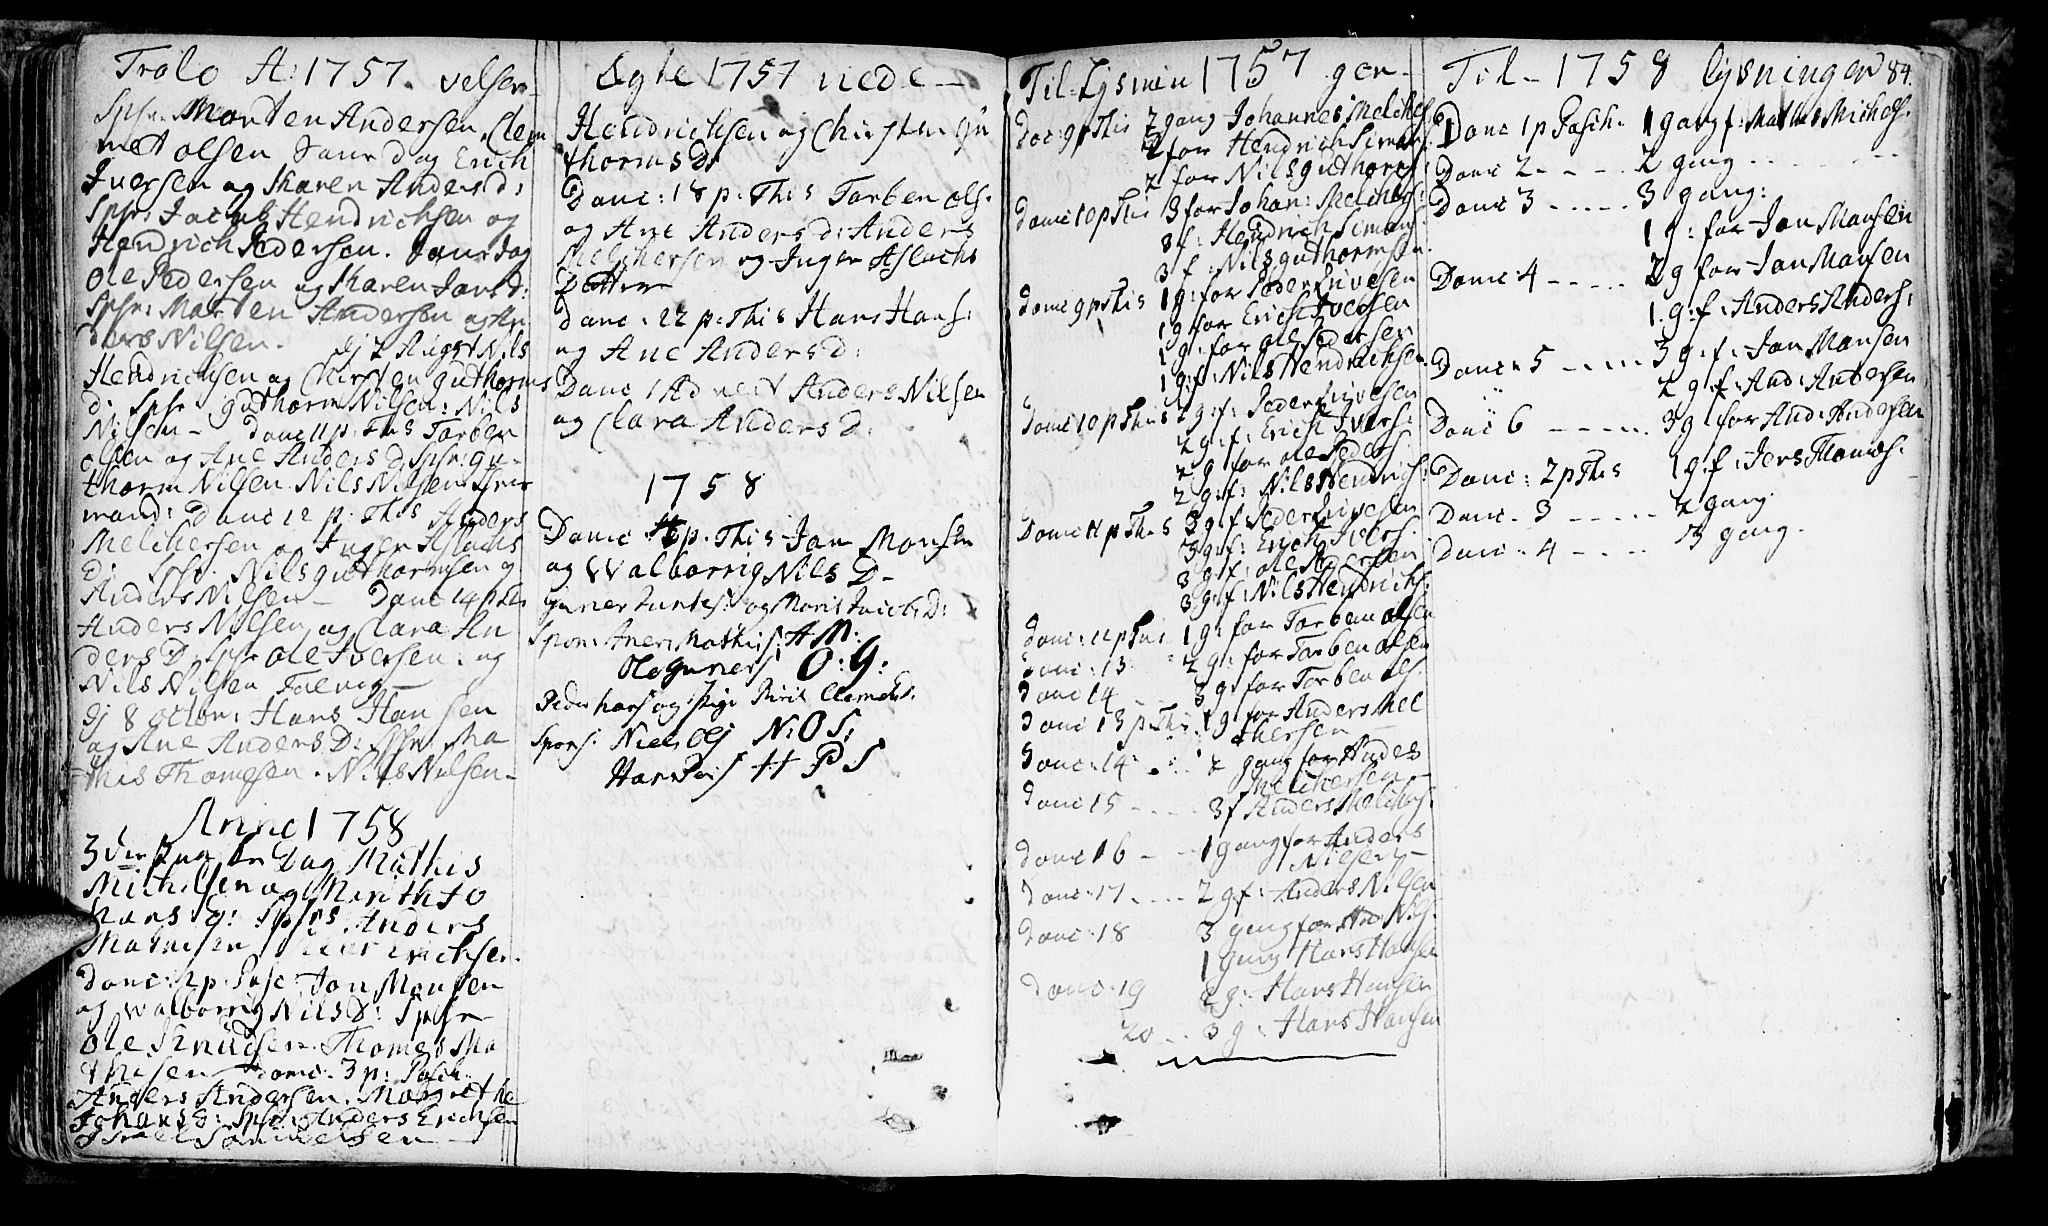 Trolo A: 1757. velsen
Spsr. Morten Andersen, Clem
met olsen Sam dag Erich
Iversen og Karen Andersd:
Spsr: Jacob Hendrichsen og
Hendrich Pedersen. Sam dag
Ole Pedersen og Karen Jansd:
Spsr: Morten Andersen og An
ders Nilsen. dj 2 August Nils
Hendrichsen og Chirsten Guthorms
d: Spsr Guthorm Nilsen: Nils
Nilsen - Domc 11 p: This Torben
olsen og Ane Anders d. Spsr: Gu-
thorm Nilsen Nils Nilsen
mand: Domc 12 p. This Anders
Melchersen og Inger Aslachs
D: Spsr. Nils Guthormsen og
Anders Nilsen - Domc 14 p This
Anders Nilsen og Clara An
ders D: Spsr Ole Iversen: og
Nils Nilsen
dj 8 octbr: Hans Hansen
og Ane Anders D: Spsr Ma
this Thomesen. Nils Nilsen -
Anno 1758
3die Dag Mathis
Michelsen og Marith Jo
hans D: Spsrs Anders
Mathisen Erichsen.
Domc: 2 p: Pasc: Jon Monsen
og Walborrig Nils D: Spsr
Ole Knudsen. Thomes Ma
thisen domc. 3 p: Pasch:
Anders Andersen. Margrethe
Johans d: Spsr: Anders Erichsen
Samuelsen
Egte 1757 viede
Hendrichsen og Chirsten Gu
thorms Dr
Domc: 18 p: This Torben ols.
og Ane Anders d: Anders
Melchersen og Inger Aslachs
Dotter
domc: 22 p: This Hans Hans:
og Ane Anders d:
Domc 1 Advent Anders Nilsen
og Clara Anders D:
1758
Domc: p. This Jon Monsen
og Walborrig Nils D-
og Marit Jacobs D:
Spon: Mathis: A M:
Ole Guners O: G:
Peder hans og Siri Clemends.
Spons: Niels Olsj N: O S:
Hans Pers H P S
Til Lysnin 1757 ger
doc: 9 p This 2 gang Johannes Melchers
2 for Hendrich Simons:
2 for Nils Guthorms:
domc 10 p This 3 for Johan: Melchers:
3 f: Hendrich Simons
3 f: Nils Guthormsen.
domc 9 p This 1 g: for Peder Enersen
1 g for Erich Iversen
1 g: for ole Pedersen
1 g: f: Nils Hendrichsen.
domc 10 p This 2 g: f: Peder
2 g: f: Erich Ivers:
2 g for ole Peders
2 g: f: Nils Hendrichs:
Domc 11 p This 3 g: f: Peder
3 g: f: Erich Ivers.
3 g: f: ole Pedersen
3 g: f: Nils Hendrichs:
domc: 12 p This 1 g: for Torben olsen
domc: 13 2 g: for Torben olsen
domc 14 3 g: for Torben ols.
domc 13 p: This. 1 g: for Anders Mel
chersen
domc: 14 2 gang for Andes
Melchersen
domc 15 - - - - 3 f Anders Melchers:
domc 16 - - 1 gang for Anders
Nilsen
domc: 17. . . . 2 g f: Anders Nilsen
domc: 18 3 gang for And: Nils:
1 gang Hans Hansen
domc. 19 2 g: Hans Hansen
20 . . 3 g: Hans Hansen
Til - 1758 lysninger 84.
Domc 1 p Pasch. 1 gang f: Mathis Michels.
Domc 2 - - - - 2 gang - - - - - -
Domc 3 - - - - - 3 gang:
1 g: for Jon Monsen
Domc 4 - - - - - 2 g for Jon Monsen
1. g: f: Anders Anders:
Domc: 5 - - - - - 3 g: f: Jon Monsen
2 g: f: And: Andersen
Domc 6 - - - - - 3 g for And: Andersen
Domc: 2 p This 1 g: f: Jens Thomes:
Domc. 3 - - - - - 2 gang.
Domc. 4 - - - - 3 gang.